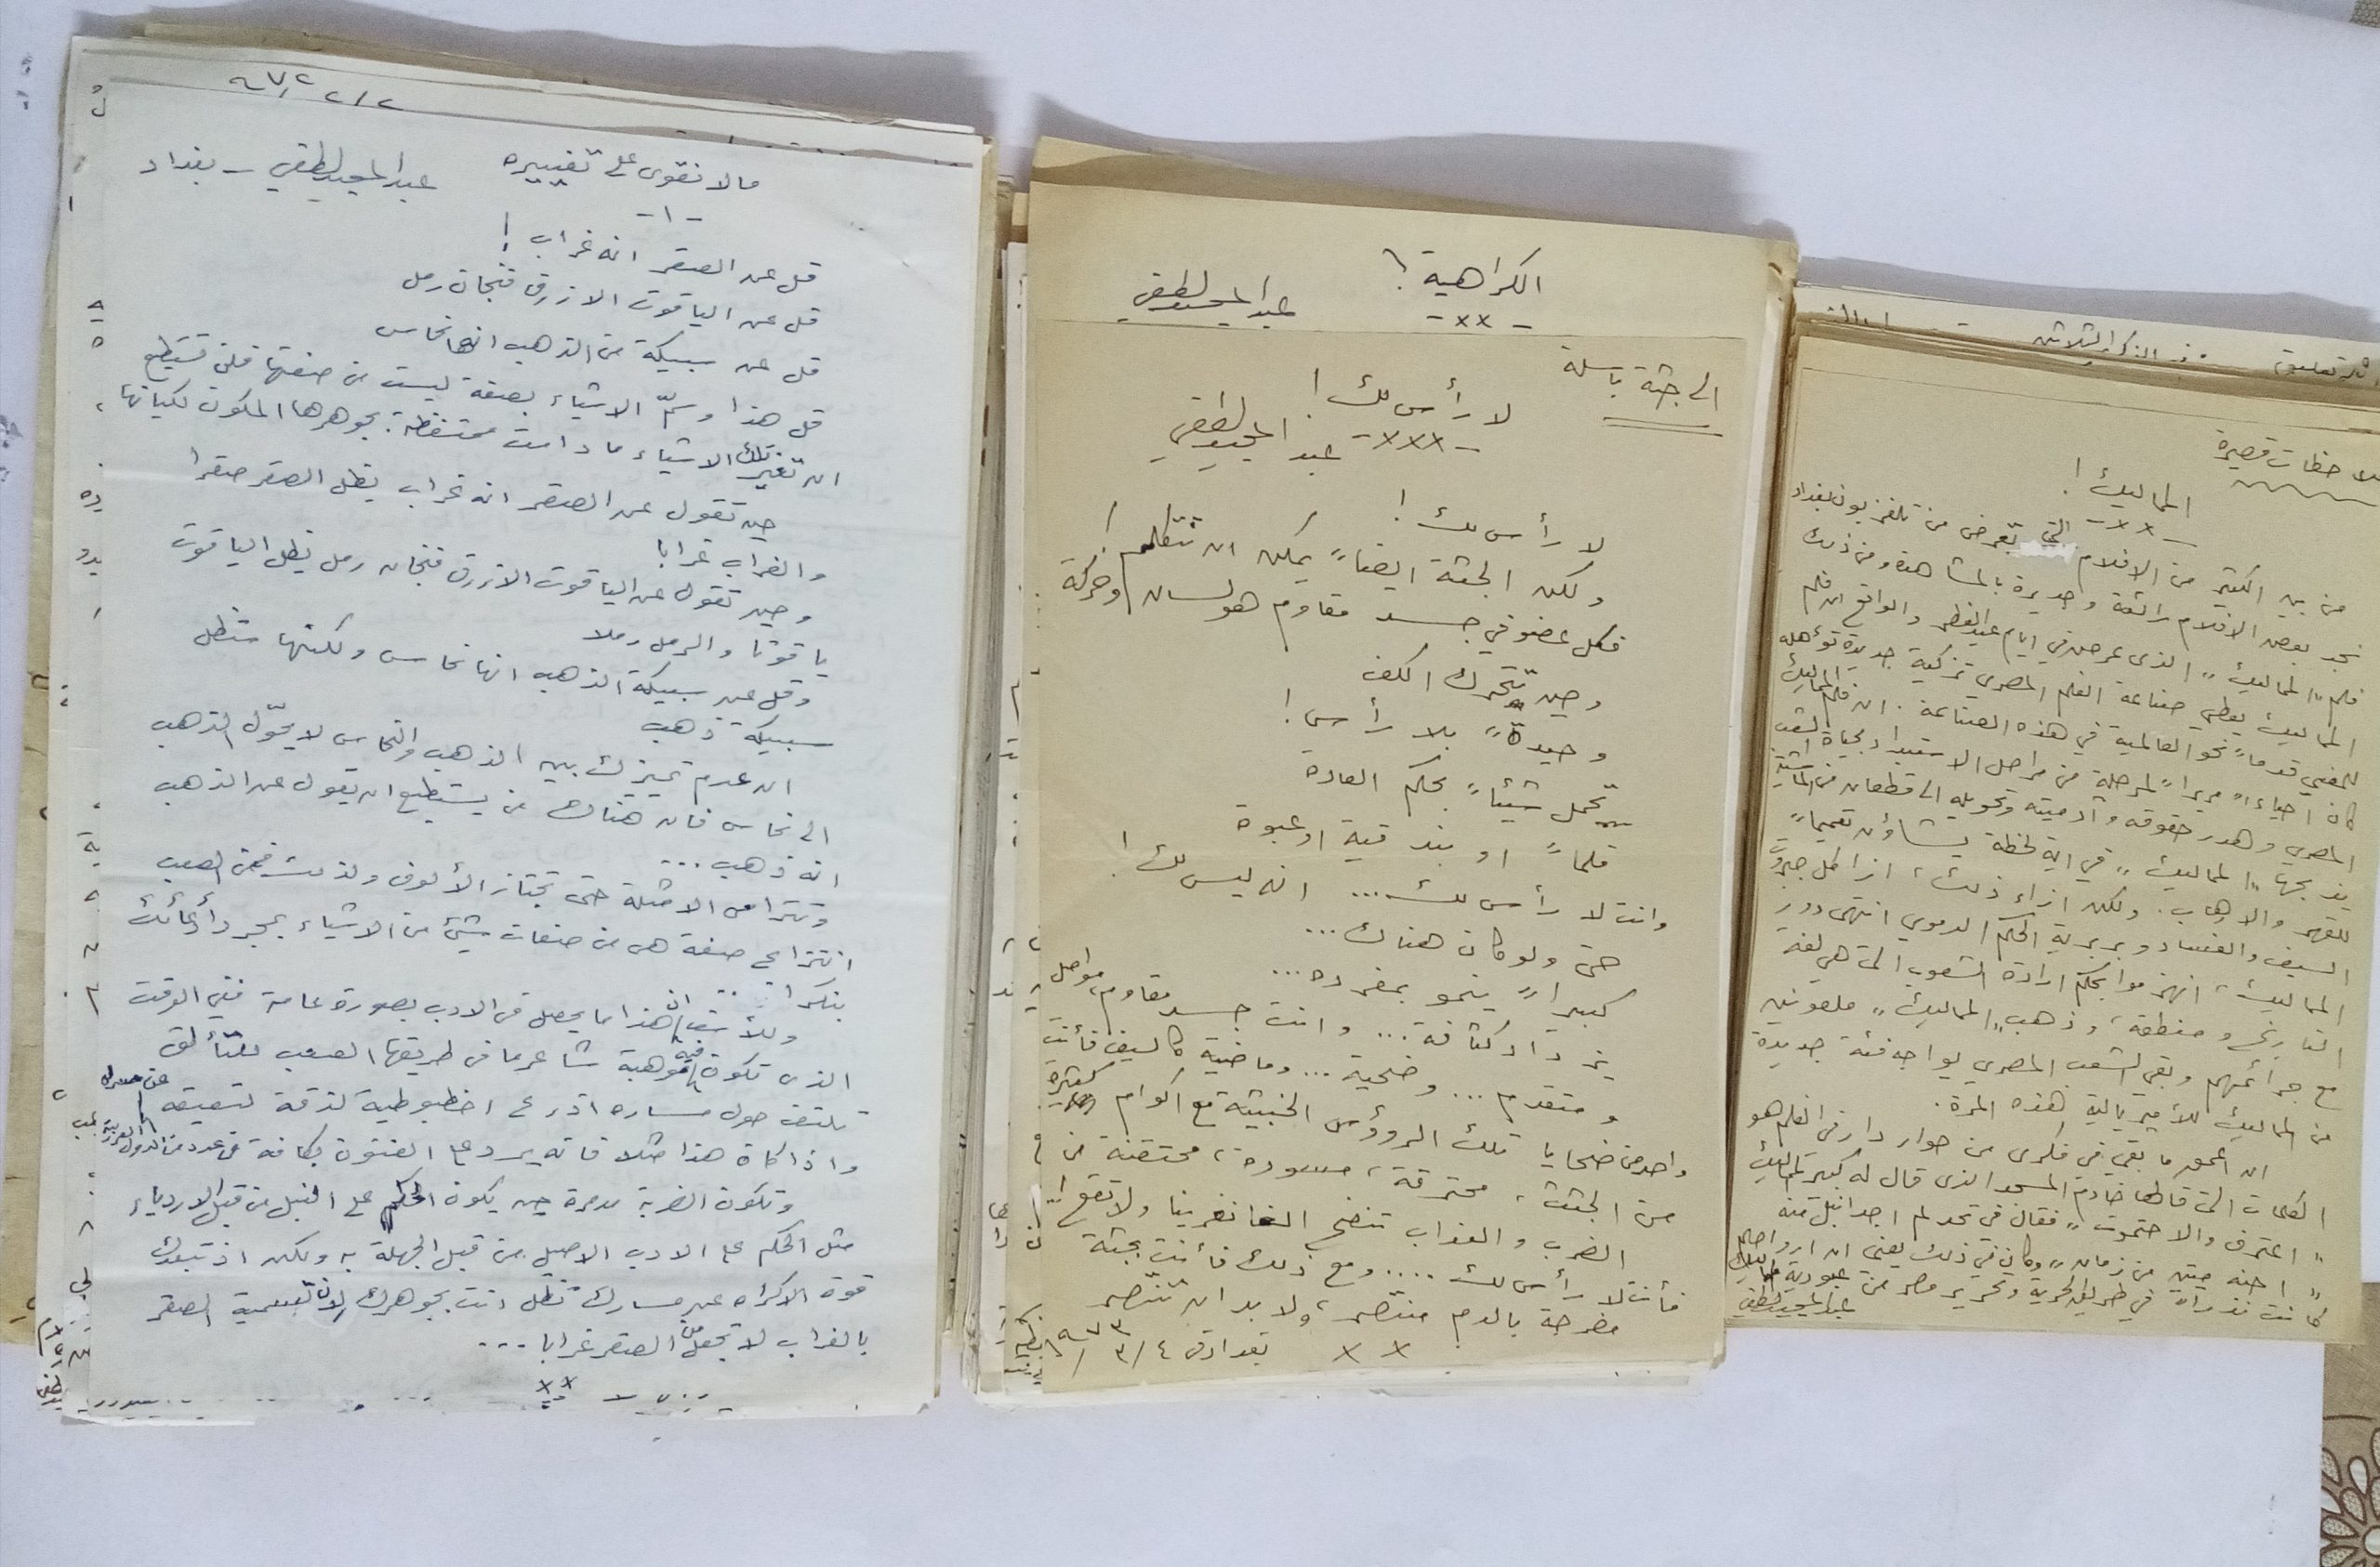 ما لا نقوى على تغييره    عبد المجيد لطفي – بغداد
-١-
قل عن الصقر انه غراب !
قل عن الياقوت الازرق فنجان رمل
قل عن سبيكة من الذهب انها نحاس
قل هذا وسمّ الاشياء بصفة ليست من صفتها فلن تستطيع
ان تغير تلك الاشياء ما دامت محتفظة بجوهرها المكون لكيانها
حين تقول عن الصقر انه غراب يظل الصقر صقرا
والغراب غرابا
وحين تقول عن الياقوت الازرق فنجان رمل يظل الياقوت
ياقوتا والرمل رملا
وقل عن سبيكة الذهب انها نحاس ولكنها ستظل
سبيكة ذهب
ان عدم تمييزك بين الذهب والنحاس لا يحوّل الذهب
الى نحاس فان هناك من يستطيع ان يقول عن الذهب
انه ذهب ...
وتتراص الامثلة حتى تجتاز الألوف ولذلك فمن الصعب
انتزاع صفة هي من صفات شيء من الاشياء بمجرد
وللأسف ان هذا ما يحصل في الادب بصورة عامة ففي الوقت
الذي تكون فيه موهبة شاعر ما في طريقها الصعب للتألق
تلتف حول مساره اذرع اخطبوطية لزقة لتعيقه عن مسراه
واذا كان هذا مثلا فانه يرد على الفنون بكافة في عدد من الدول العربية
وتكون الضربة مدمرة حين يكون الحكم على النبل من قبل الاردياء
مثل الحكم على الادب الاصيل من قبل الجهلة به ولكن اذ تبعدك
قوة الاكراه عن مسارك تظل انت بجوهرك لان تسمية الصقر
بالغراب لا تجعل من الصقر غرابا ...
الكراهية !
-××-    عبد المجيد لطفي
الى جثة باسلة
لا رأس لك !
-×××-    عبد المجيد لطفي
لا رأس لك !
ولكن الجثة ايضاً يمكن ان تتكلم !
فكل عضو في جسد مقاوم هو لسان وحركة
وحين تتحرك الكف
وحيدة بلا رأس !
تحمل شيئاً بحكم العادة
قلماً او بندقية او عبوة
وانت لا رأس لك ... انه ليس لك !
حتى ولو كان هناك ...
كبيراً ينمو بمفرده ...
يزداد كثافة ... وانت جسد مقاوم، مواصل
ومتقدم ... وضحية ... وماضية كالسيف فأنت
واحد من ضحايا تلك الرؤوس الخبيثة مع اكوام كثيرة
من الجثث، محترقة، مسودة، محتقنة من
الضرب والعذاب تنضح الغانغرينا ولا تقع !
فأنت لا رأس لك .... ومع ذلك فأنت بجثة
مضرجة بالدم منتصر، ولا بد ان تنتصر
××    بغداد في ٤/٣/٩٧٣
ملاحظات قصيرة
المماليك !
-××-
من بين الكثير من الافلام التي تعرض من تلفزيون بغداد
نجد بعض الافلام رائعة وجديرة بالمشاهدة ومن ذلك
فلم "المماليك" الذي عرض في ايام عيد الفطر والواقع ان فلم
المماليك يعطي صناعة الفلم المصري تزكية جديدة تؤهله
للمضي قدماً نحو العالمية في هذه الصناعة. ان فلم المماليك
كان احياءاً مريراً لمرحلة من مراحل الاستبداد بحياة الشعب
المصري وهدر حقوقه وآدميته وتحويله الى قطعان من الماشية
يذبحها "المماليك" في اية لحظة يشاؤن تعميماً
للقهر والارهاب. ولكن ازاء ذلك، ازاء كل جبروت
السيف والفساد وبربرية الحكم الدموي انتهى دور
المماليك، انهزموا بحكم ارادة الشعوب التي هي لغة
التاريخ ومنطقه، وذهب "المماليك" ملعونين
مع جرائمهم وبقى الشعب المصري يواجه فئة جديدة
من المماليك للأمبريالية هذه المرة.
ان اعمق ما بقي في فكري من حوار دار في الفلم هو
الكلمات التي قالها خادم المسجد الذي قال له كبير المماليك
"اعترف والا حتموت" فقال في تحد لم اجد انبل منه
"احنه ميتين من زمان" وكان في ذلك يعني ان ارواحهم
كانت نذراً في طريق الحرية وتحرير مصر من عبودية المماليك
عبد المجيد لطفي